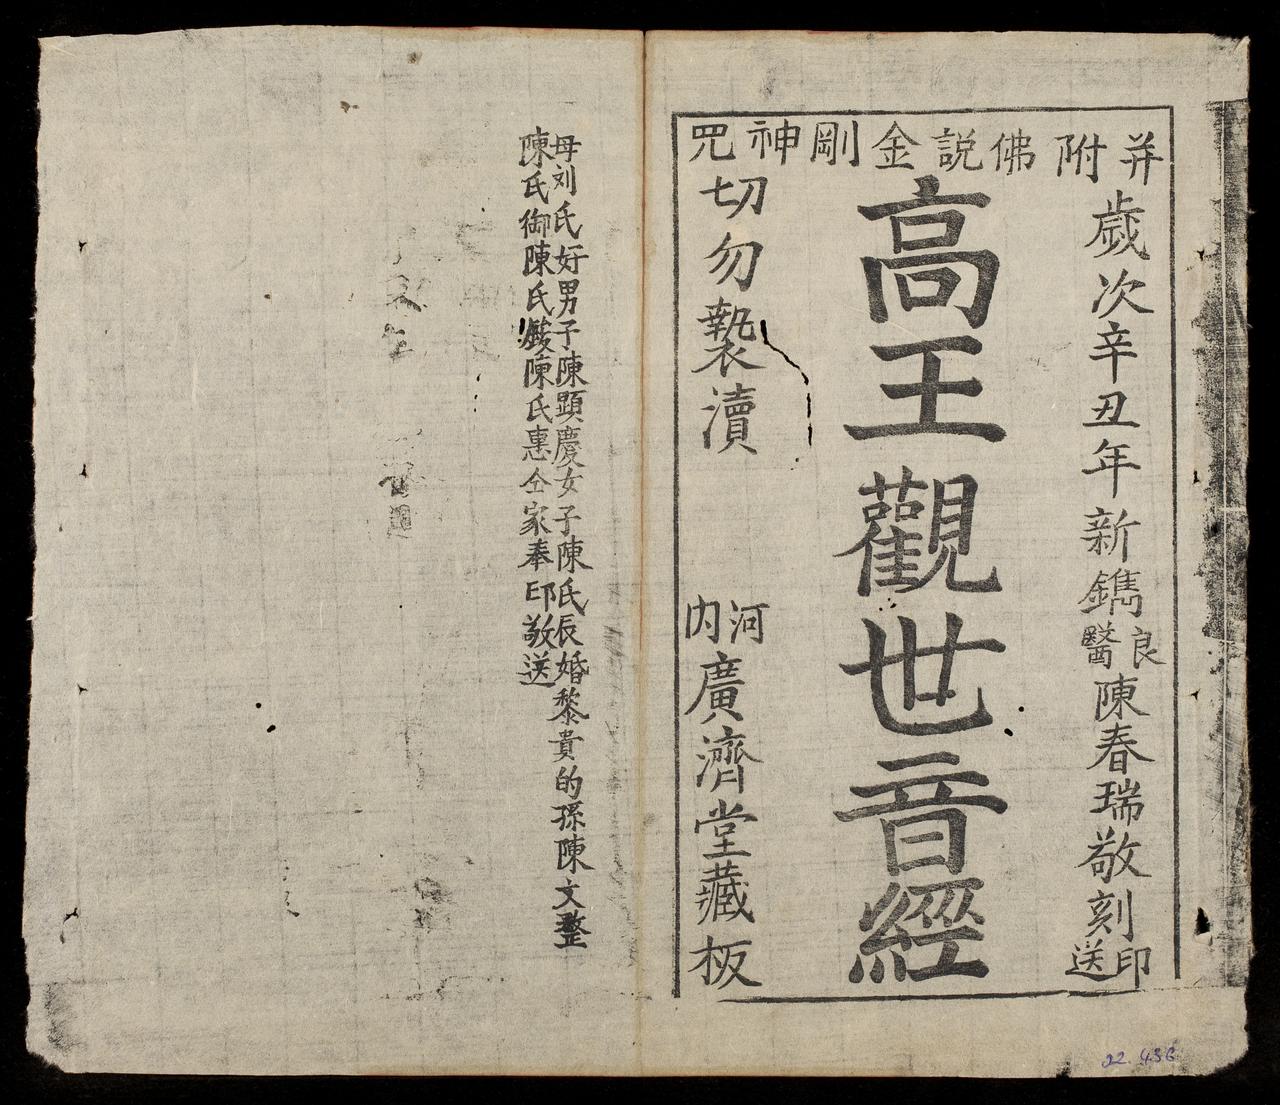 并附佛説金剛神咒
歲次辛丑年新鐫良醫陳春瑞敬刻印送
高王觀世音經
切勿褻瀆
河内廣濟堂藏板
母刘氏好男子陳顕慶女子陳氏辰婚黎貴的孫陳文整
陳氏御陳氏陳氏惠仝家奉印敬送
22.436